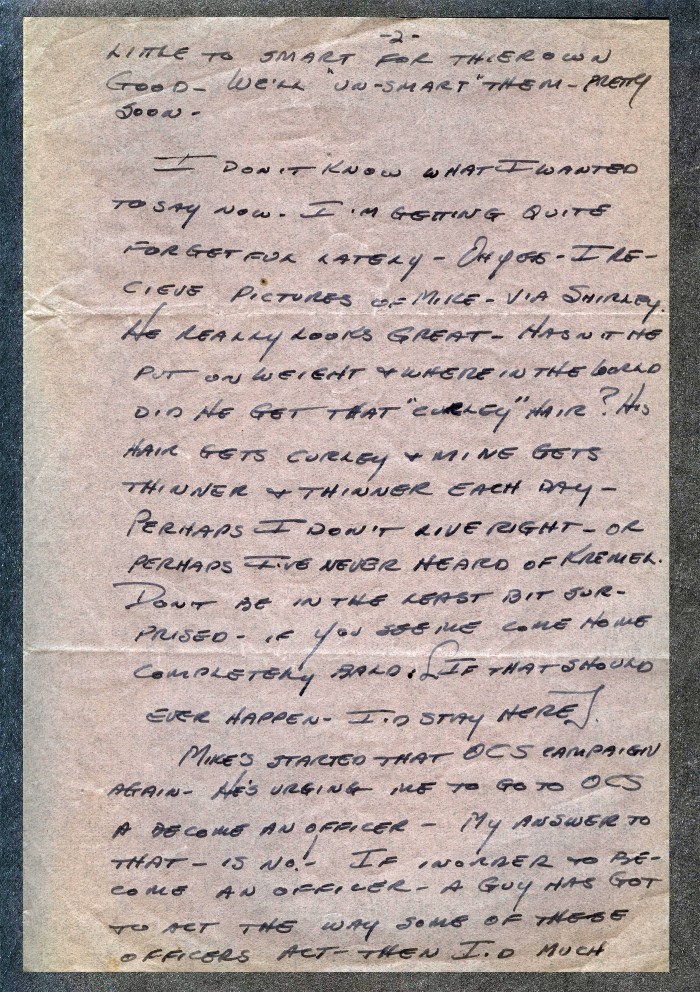 -2-
LITTLE TO SMART FOR THIER OWN
GOOD- WE'LL "UN-SMART" THEM - PRETTY
SOON -
I DON'T KNOW WHAT I WANTED
TO SAY NOW. I'M GETTING QUITE
FORGETFUL LATELY - OH YES - I RE-
CIEVE PICTURES OF MIKE - VIA SHIRLEY.
HE REALLY LOOKS GREAT - HASN'T HE
PUT ON WEIGHT & WHERE IN THE WORLD
DID HE GET THAT "CURLEY" HAIR? HIS
HAIR GETS CURLEY & MINE GETS
THINNER & THINNER EACH DAY -
PERHAPS I DON'T LIVE RIGHT - OR
PERHAPS I'VE NEVER HEARD OF KREMEL.
DON'T BE IN THE LEAST BIT SUR-
PRISED - IF YOU SEE ME COME HOME
COMPLETELY BALD. [IF THAT SHOULD
EVER HAPPEN - I'D STAY HERE].
MIKE'S STARTED THAT OCS CAMPAIGN
AGAIN - HE'S URGING ME TO GO TO OCS
A BECOME AN OFFICER - MY ANSWER TO
THAT - IS NO! - IF INORRER TO BE-
COME AN OFFICER - A GUY HAS GOT
TO ACT THE WAY SOME OF THESE
OFFICERS ACT - THEN I'D MUCH